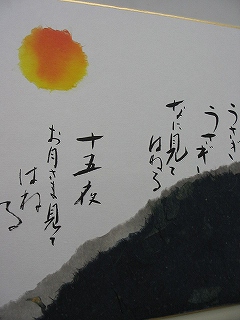 うさぎ
うさぎ
なに見て
はねる
十五夜
お月さま見て
はねる